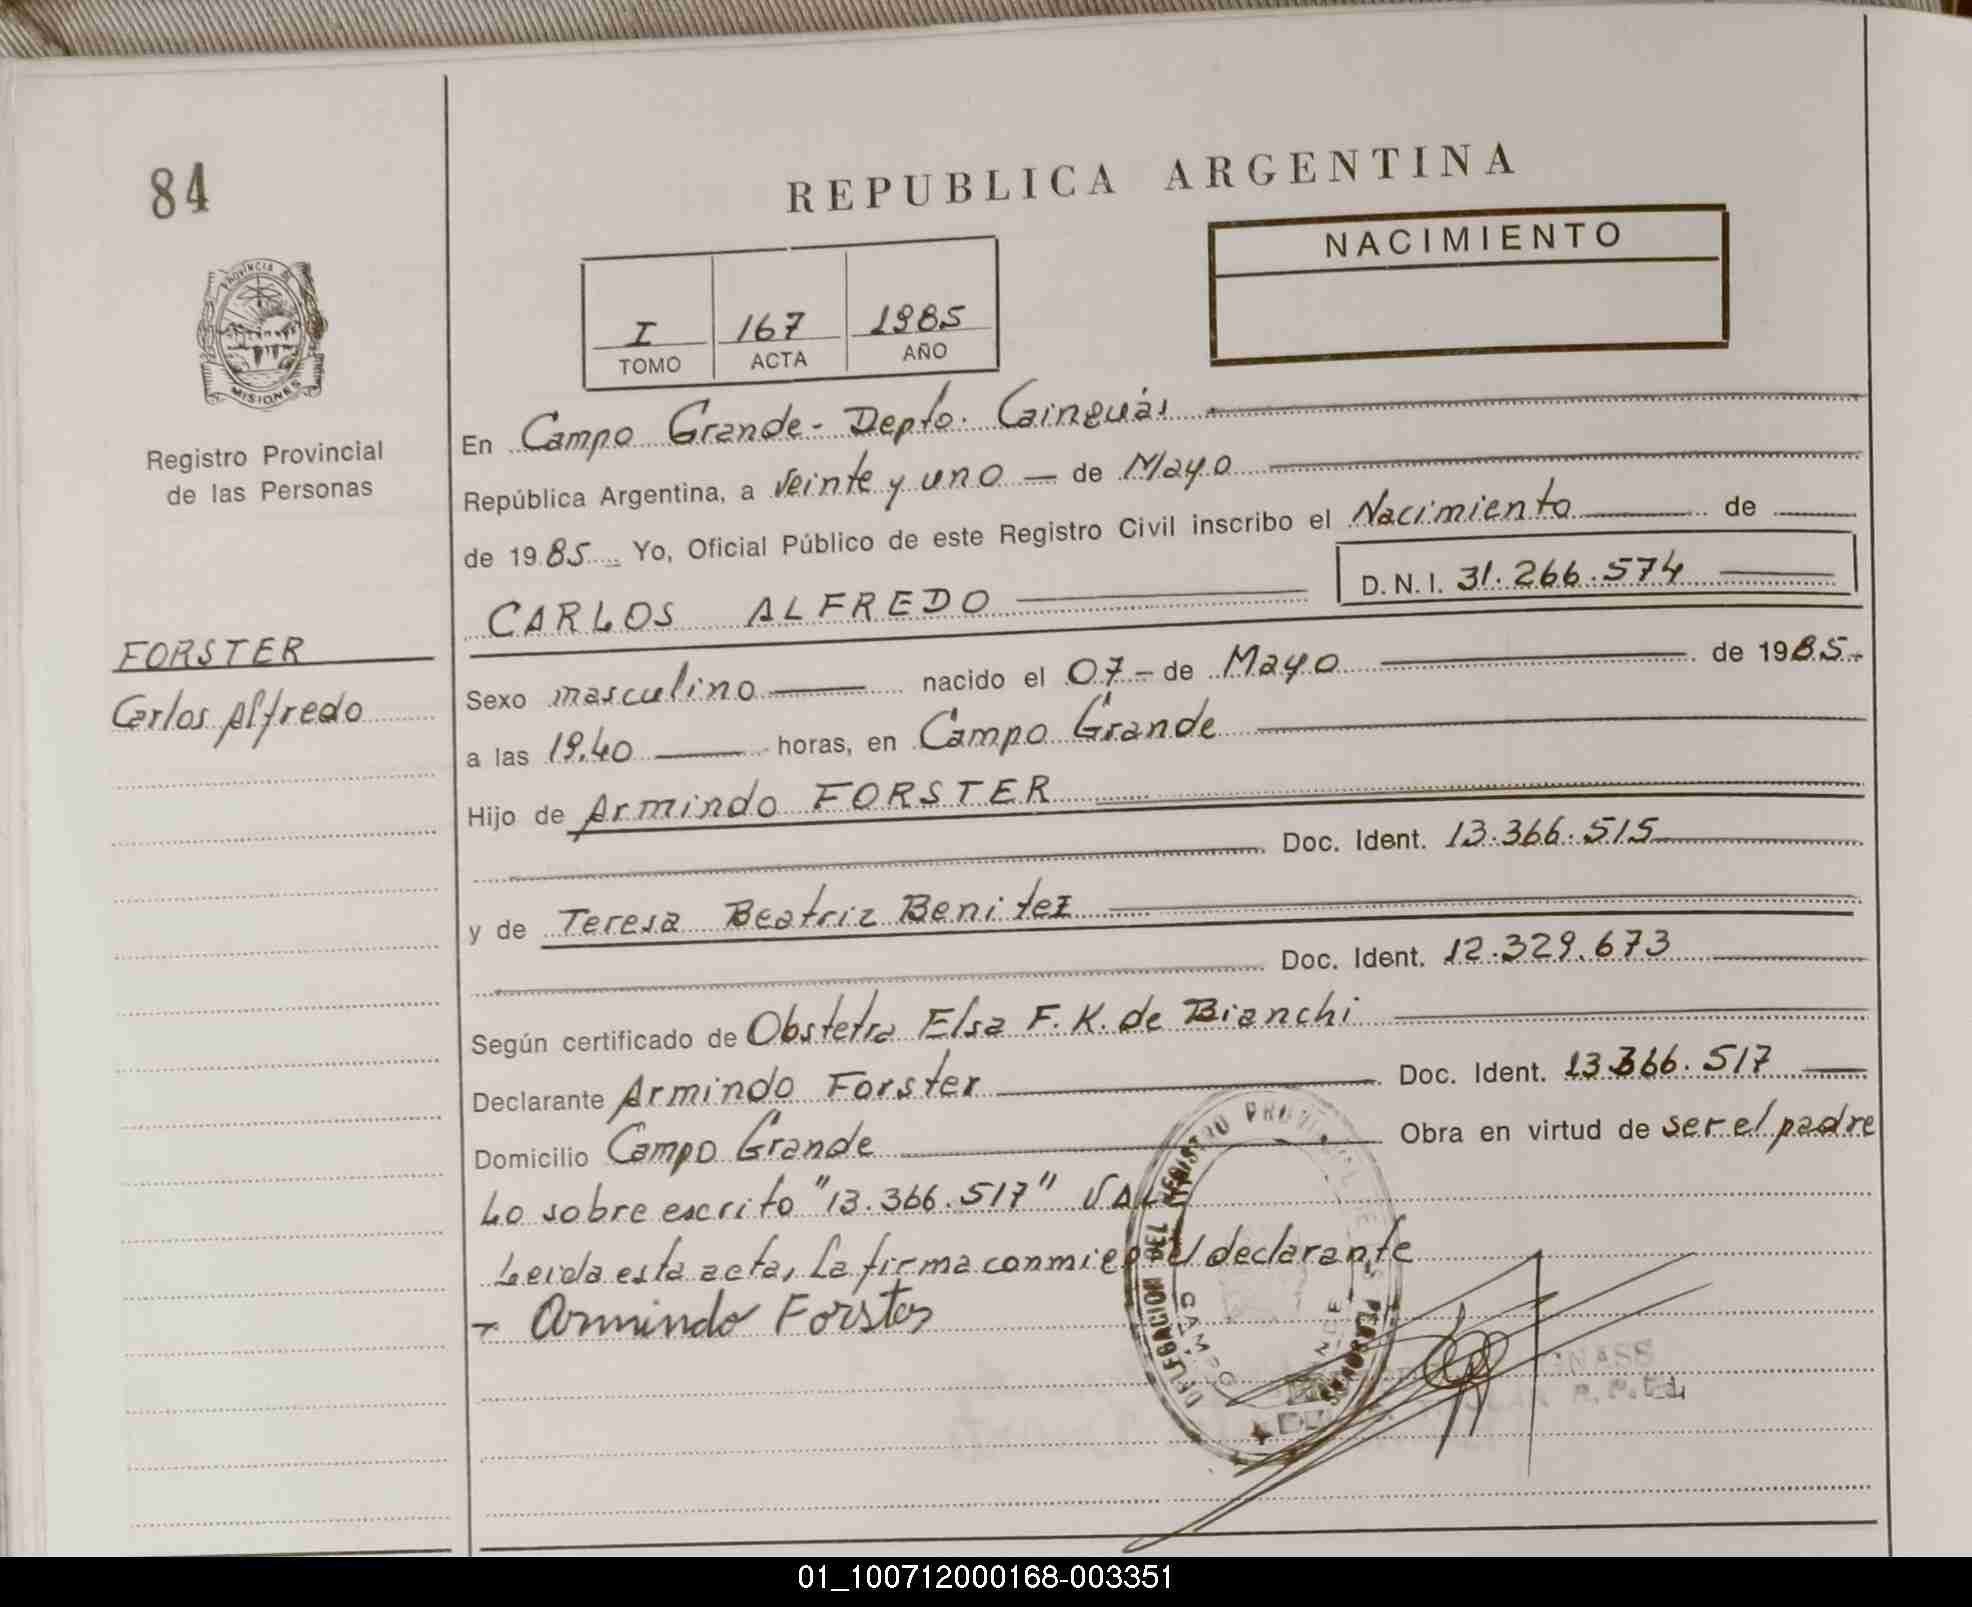 84
REPUBLICA ARGENTINA
NACIMIENTO
I 167 1985
TOMO ACTA AÑO
PROVINCIA DE
MISIONES
Registro Provincial
de las Personas
FORSTER
Carlos Alfredo
En Campo Grande - Depto. Cainguás
República Argentina, a veinte y uno — de Mayo
de 1985 Yo, Oficial Público de este Registro Civil inscribo el Nacimiento de
CARLOS ALFREDO D. N. I. 31.266.574
Sexo masculino nacido el 07 - de Mayo de 1985.-
a las 19.40 horas, en Campo Grande
Hijo de Armindo FORSTER
Doc. Ident. 13.366.515
y de Teresa Beatriz Benitez
Doc. Ident. 12.329.673
Según certificado de Obstetra Elsa F. K. de Bianchi
Declarante Armindo Forster Doc. Ident. 13.366.517
Domicilio Campo Grande Obra en virtud de ser el padre
Lo sobre escrito "13.366.517" VALE
Leida esta acta, La firma conmigo el declarante
- Armindo Forster
DELEGACION DEL REGISTRO PROVINCIAL DE LAS PERSONAS
CAMPO GRANDE
01_100712000168-003351